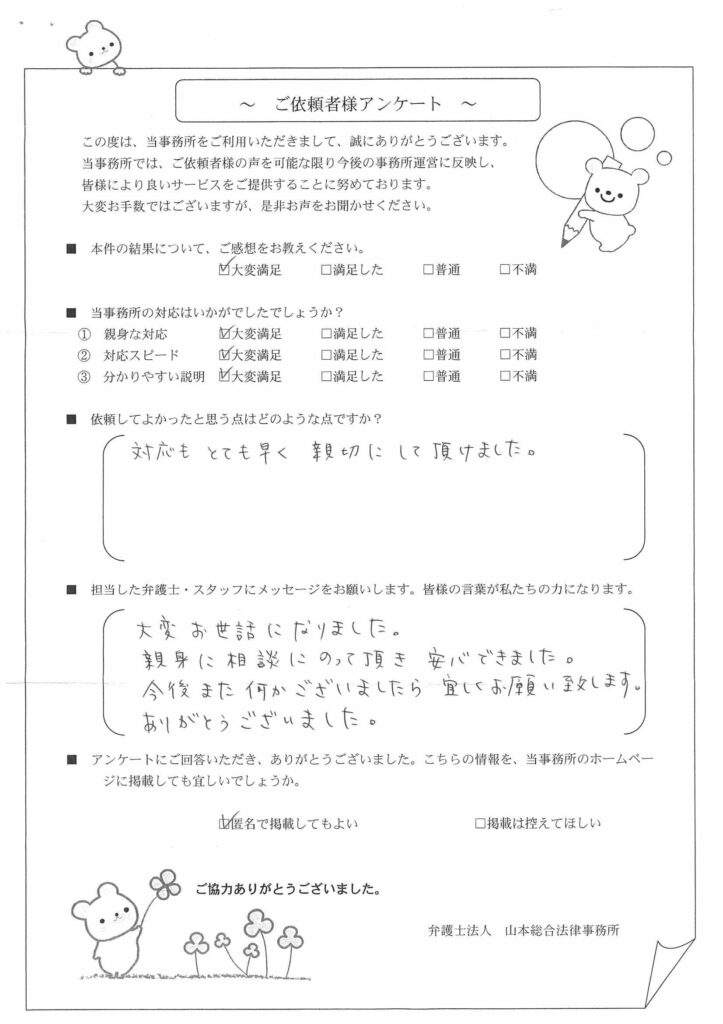 ～ ご依頼者様アンケート ～
この度は、当事務所をご利用いただきまして、誠にありがとうございます。
当事務所では、ご依頼者様の声を可能な限り今後の事務所運営に反映し、
皆様により良いサービスをご提供することに努めております。
大変お手数ではございますが、是非お声をお聞かせください。
■ 本件の結果について、ご感想をお教えください。
☑大変満足 □満足した □普通 □不満
■ 当事務所の対応はいかがでしたでしょうか？
① 親身な対応 ☑大変満足 □満足した □普通 □不満
② 対応スピード ☑大変満足 □満足した □普通 □不満
③ 分かりやすい説明 ☑大変満足 □満足した □普通 □不満
■ 依頼してよかったと思う点はどのような点ですか？
対応も とても早く 親切に して頂けました。
■ 担当した弁護士・スタッフにメッセージをお願いします。皆様の言葉が私たちの力になります。
大変 お世話に なりました。
親身に 相談に のって頂き 安心できました。
今後また 何かございましたら 宜しくお願い致します。
ありがとうございました。
■ アンケートにご回答いただき、ありがとうございました。こちらの情報を、当事務所のホームペー
ジに掲載しても宜しいでしょうか。
☑匿名で掲載してもよい □掲載は控えてほしい
ご協力ありがとうございました。
弁護士法人 山本総合法律事務所